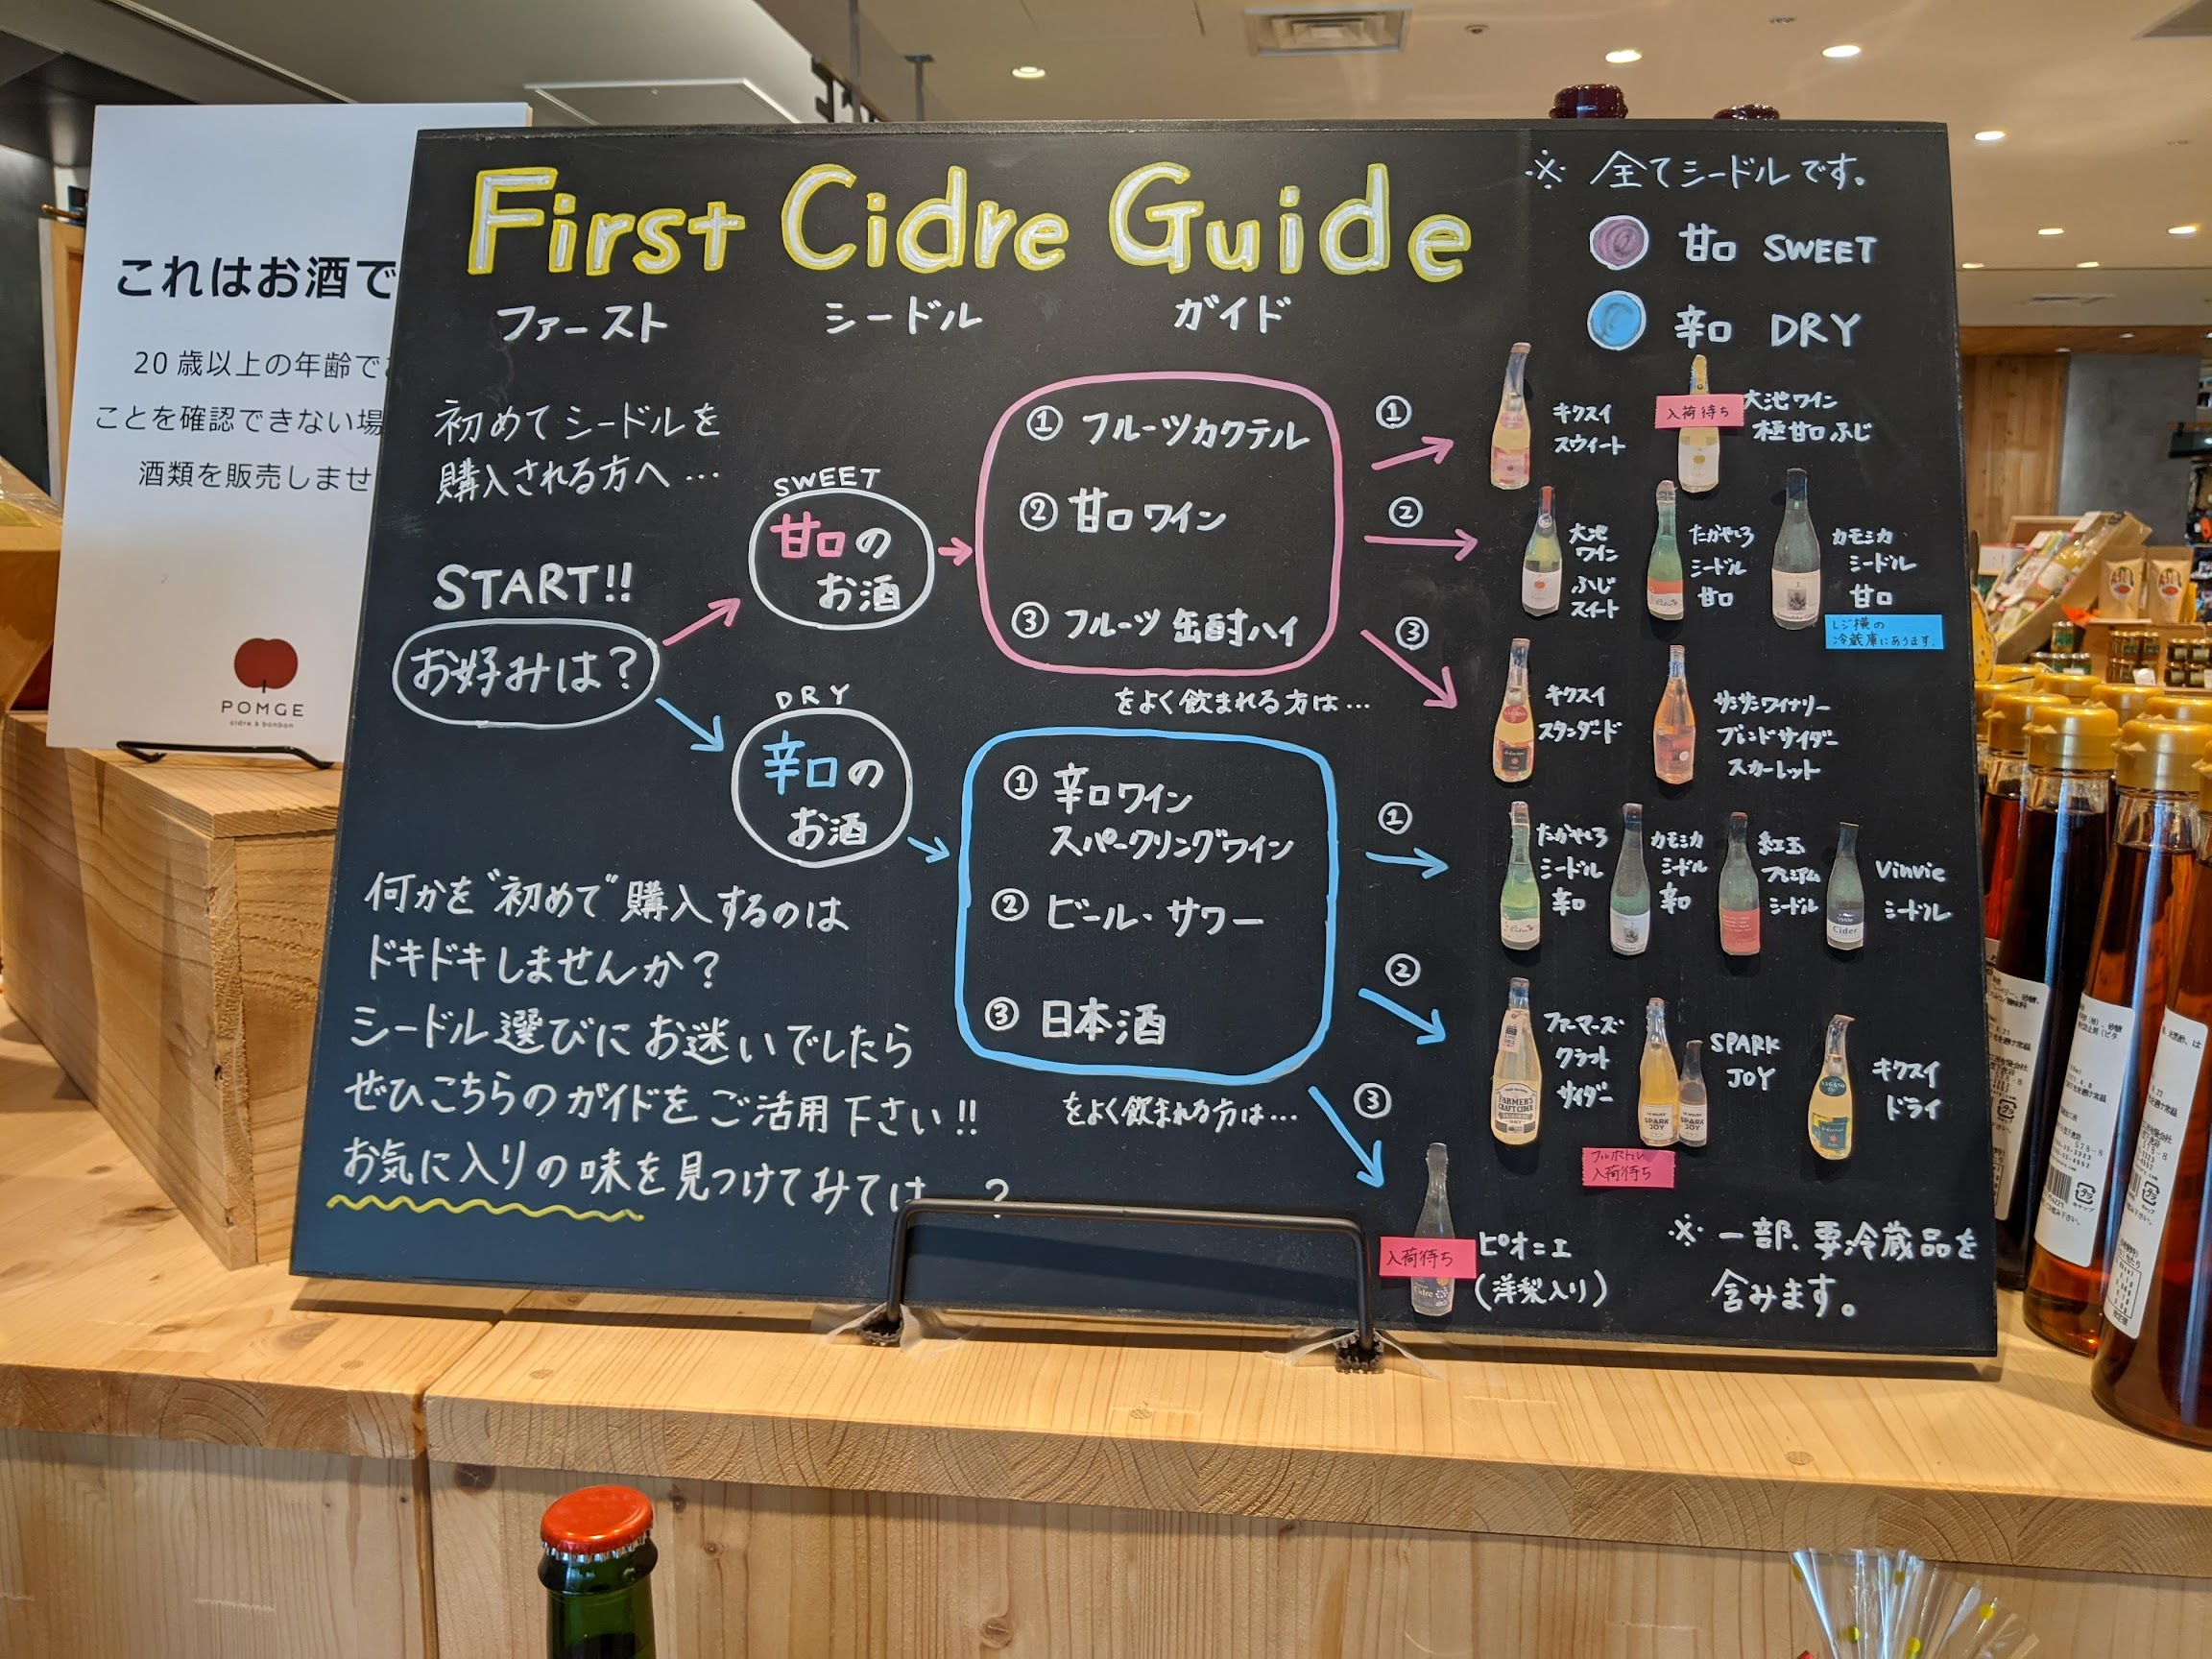 これはお酒で
20歳以上の年齢でお
ことを確認できない場
酒類を販売しませ
POMGE
cidre & bonbon
First Cidre Guide
ファースト シードル ガイド
初めてシードルを
購入される方へ…
START!!
お好みは?
SWEET
甘口の
お酒
DRY
辛口の
お酒
① フルーツカクテル
② 甘口ワイン
③ フルーツ 缶酎ハイ
をよく飲まれる方は…
① 辛口ワイン
スパークリングワイン
② ビール・サワー
③ 日本酒
をよく飲まれる方は…
何かを"初めて"購入するのは
ドキドキしませんか?
シードル選びにお迷いでしたら
ぜひこちらのガイドをご活用下さい!!
お気に入りの味を見つけてみては ?
※ 全てシードルです。
甘口 SWEET
辛口 DRY
①
キクスイ
スウィート
入荷待ち
大池ワイン
極甘口ふじ
②
大池
ワイン
ふじ
スイート
たかやしろ
シードル
甘口
カモシカ
シードル
甘口
レジ横の
冷蔵庫にあります。
③
キクスイ
スタンダード
サンサンワイナリー
ブレンドサイダー
スカーレット
①
たかやしろ
シードル
辛口
カモシカ
シードル
辛口
紅玉
プレミアム
シードル
Vinvie
シードル
Cider
②
ファーマーズ
クラフト
サイダー
FARMER'S
CRAFT CIDER
SPARK
JOY
SPARK
JOY
SPARK
JOY
フルボトル
入荷待ち
キクスイ
ドライ
③
入荷待ち
Cidre
ピオニエ
(洋梨入り)
※ 一部、要冷蔵品を
含みます。